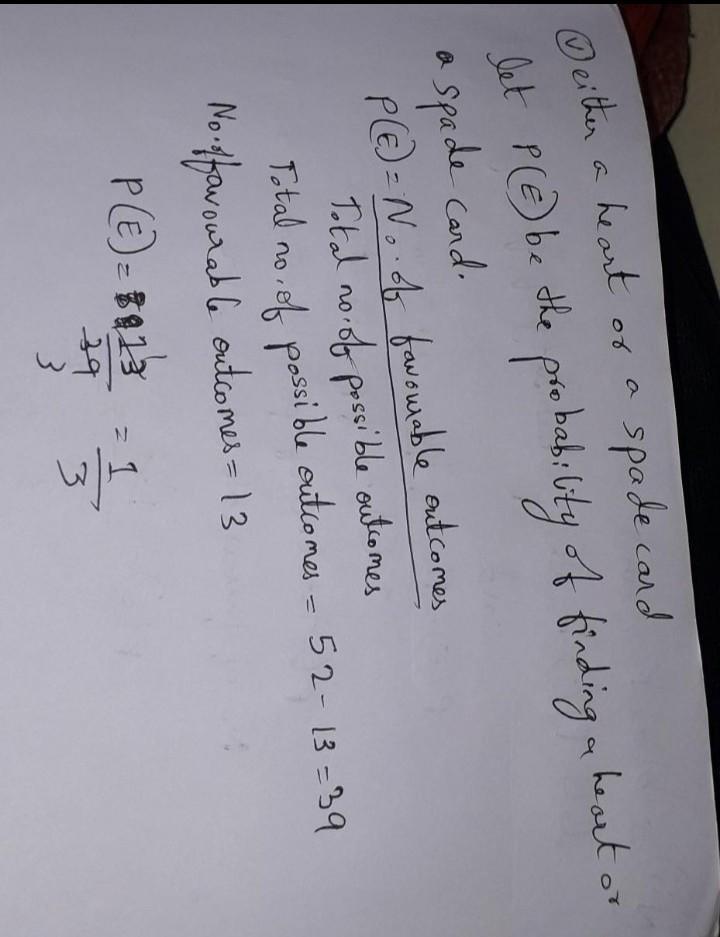 (v) either a heart or a spade card
let P(E) be the probability of finding a heart or
a spade card.
P(E) = No. of favourable outcomes
Total no. of possible outcomes
Total no. of possible outcomes = 52 - 13 = 39
No. of favourable outcomes = 13
P(E) = 13 = 1
39 3
3